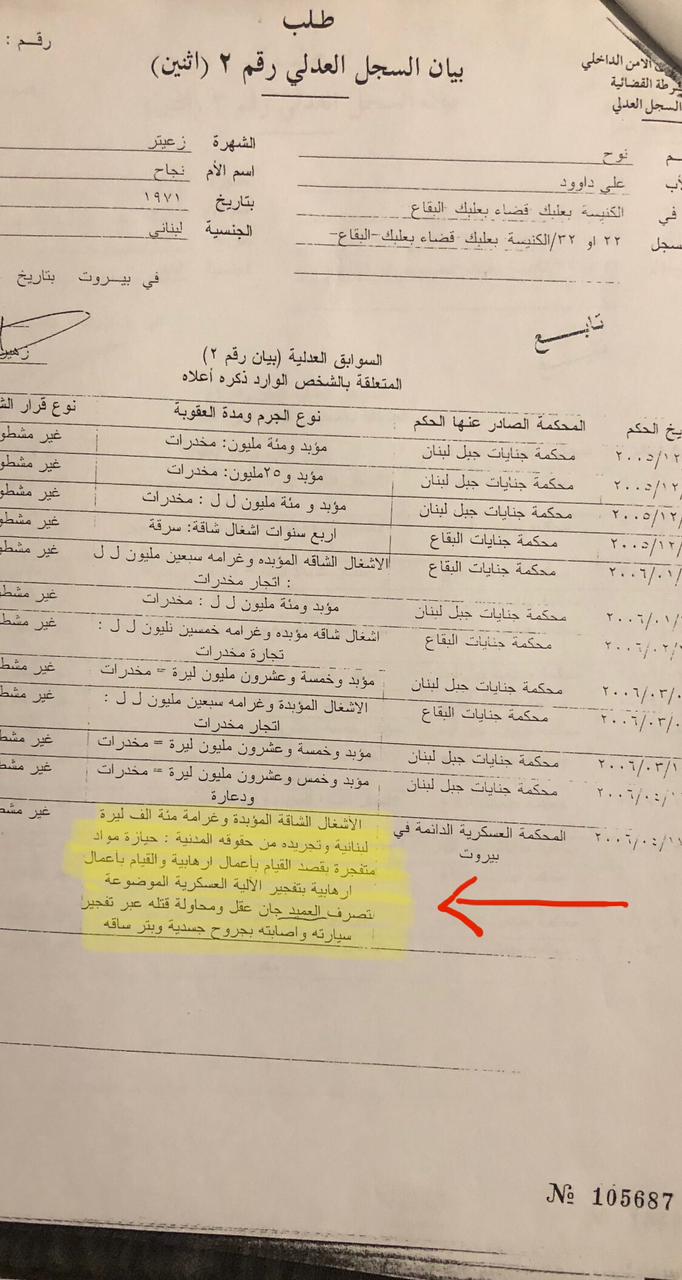 طلب
رقم :
بيان السجل العدلي رقم ٢ (اثنين)
الامن الداخلي
القضائية
السجل العدلي
نوح الشهرة زعيتر
علي داوود اسم الأم نجاح
في الكنيسة بعلبك قضاء بعلبك البقاع بتاريخ ١٩٧١
سجل ٢٢ او ٣٢/الكنيسة بعلبك قضاء بعلبك-البقاع- الجنسية لبناني
في بيروت بتاريخ
تابع
السوابق العدلية (بيان رقم ٢)
المتعلقة بالشخص الوارد ذكره أعلاه
الحكم المحكمة الصادر عنها الحكم نوع الجرم ومدة العقوبة نوع قرار
٢٠٠٥/١٢/ محكمة جنايات جبل لبنان مؤبد ومئة مليون: مخدرات غير
٢٠٠٥/١٢/ محكمة جنايات جبل لبنان مؤبد و٢٥مليون: مخدرات غير
٢٠٠٥/١٢/ محكمة جنايات جبل لبنان مؤبد و مئة مليون ل ل : مخدرات غير
٢٠٠٥/١٢/ محكمة جنايات البقاع اربع سنوات اشغال شاقة: سرقة غير
٢٠٠٦/٠١/ محكمة جنايات البقاع الاشغال الشاقه المؤبده وغرامه سبعين مليون ل ل غير
: اتجار مخدرات
٢٠٠٦/٠١/ محكمة جنايات جبل لبنان مؤبد ومئة مليون ل ل : مخدرات غير
٢٠٠٦/٠٢/ محكمة جنايات البقاع اشغال شاقه مؤبده وغرامه خمسين نليون ل ل : غير
تجارة مخدرات
٢٠٠٦/٠٣/ محكمة جنايات جبل لبنان مؤبد وخمسة وعشرون مليون ليرة = مخدرات غير
٢٠٠٦/٠٣/ محكمة جنايات البقاع الاشغال المؤبدة وغرامه سبعين مليون ل ل : غير
اتجار مخدرات
٢٠٠٦/٠٣/١ محكمة جنايات جبل لبنان مؤبد وخمسة وعشرون مليون ليرة = مخدرات غير
٢٠٠٦/٠٤/ محكمة جنايات جبل لبنان مؤبد وخمس وعشرون مليون ليرة = مخدرات غير
ودعارة
٢٠٠٦/٠٤/١١ المحكمة العسكرية الدائمة في الأشغال الشاقة المؤبدة وغرامة مئة الف ليرة غير
بيروت لبنانية وتجريده من حقوقه المدنية : حيازة مواد
متفجرة بقصد القيام بأعمال ارهابية والقيام بأعمال
ارهابية بتفجير الألية العسكرية الموضوعة
بتصرف العميد جان عقل ومحاولة قتله عبر تفجير
سيارته واصابته بجروح جسدية وبتر ساقه
№ 105687